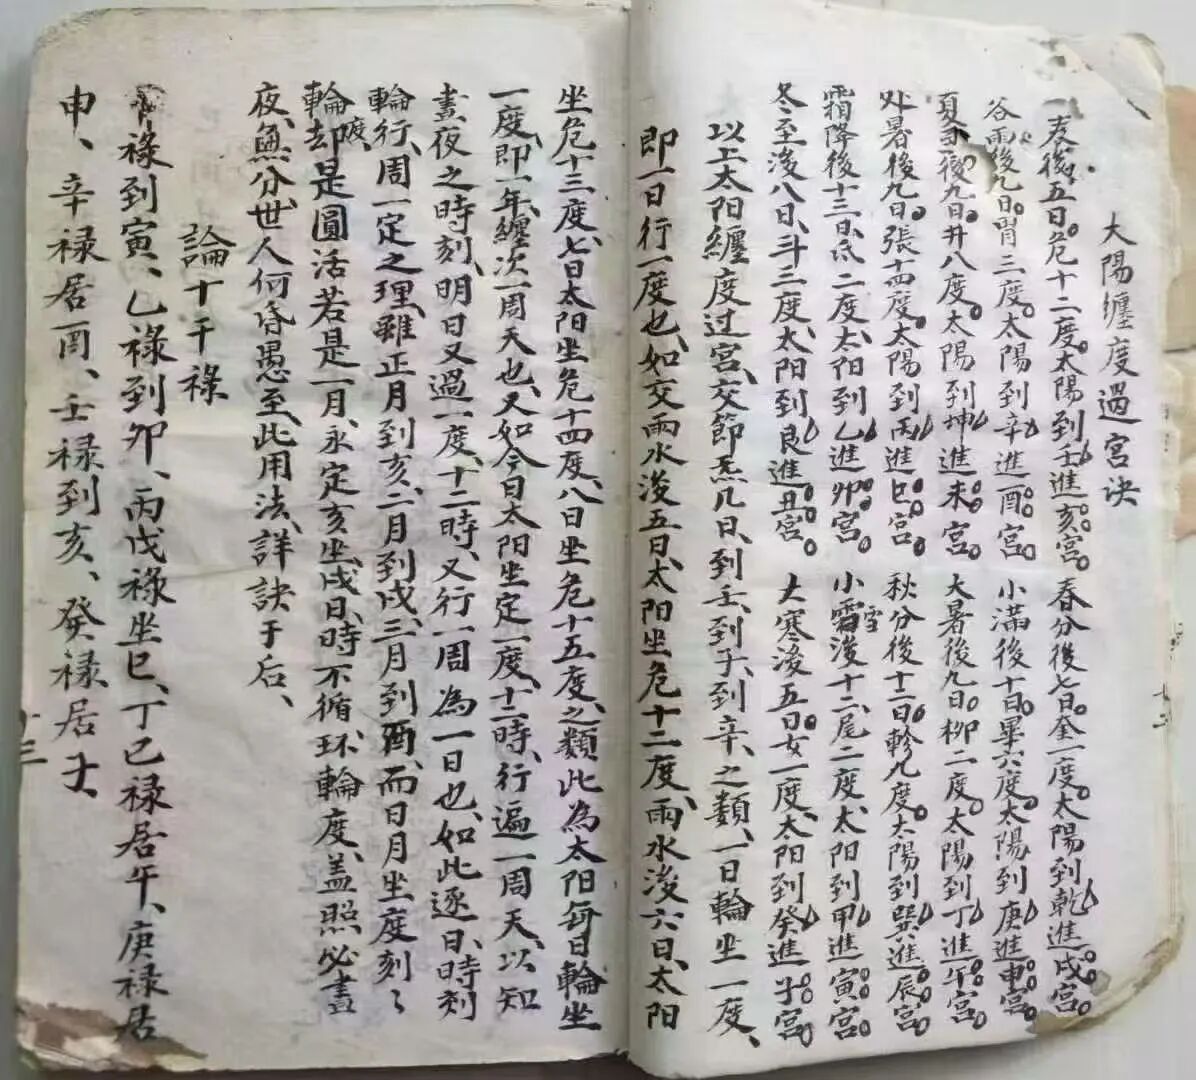 大陽纏度過宮诀
春後五日。危十二度。太陽到壬進亥宮。春分後七日。奎一度。太陽到乾進戌宮。
谷雨後九日。胃三度。太陽到辛進酉宮。小滿後十日。畢六度。太陽到庚進申宮。
夏至後九日。井八度。太陽到坤進未宮。大暑後九日。柳二度。太陽到丁進午宮。
处暑後九日。張十四度。太陽到丙進巳宮。秋分後十一日。軫九度。太陽到巽進辰宮。
霜降後十三日、氐二度、太阳到乙進卯宮。小雪後十二、尾二度、太阳到甲進寅宮。
冬至後八日、斗三度、太阳到艮進丑宮。大寒後五日。女一度、太阳到癸進子宮。
以上太阳纏度过宮、交節炁几日、到壬、到子、到辛、之類、一日輪坐一度、
即一日行一度也、如交雨水後五日、太阳坐危十二度、雨水後六日、太阳
坐危十三度、七日太阳坐危十四度、八日坐危十五度、之類此為太阳每日輪坐
一度、即一年、纏次一周天也、又如今日太阳坐定一度、十二時、行遍一周天、以知
晝夜之時刻、明日又過一度、十二時、又行一周為一日也、如此逐日、時刻
輪行、周一定之理、雖正月到亥、二月到戌、三月到酉、而日月坐度刻々
輪度、却是圓活若是一月、永定亥坐、戌日、時不循、环輪度、盖照必晝
夜、無分、世人何昏愚至、此用法、詳訣于后、
論十干禄
禄到寅、乙禄到卯、丙戊禄坐巳、丁己禄居午、庚禄居
申、辛禄居酉、壬禄到亥、癸禄居子、
十三